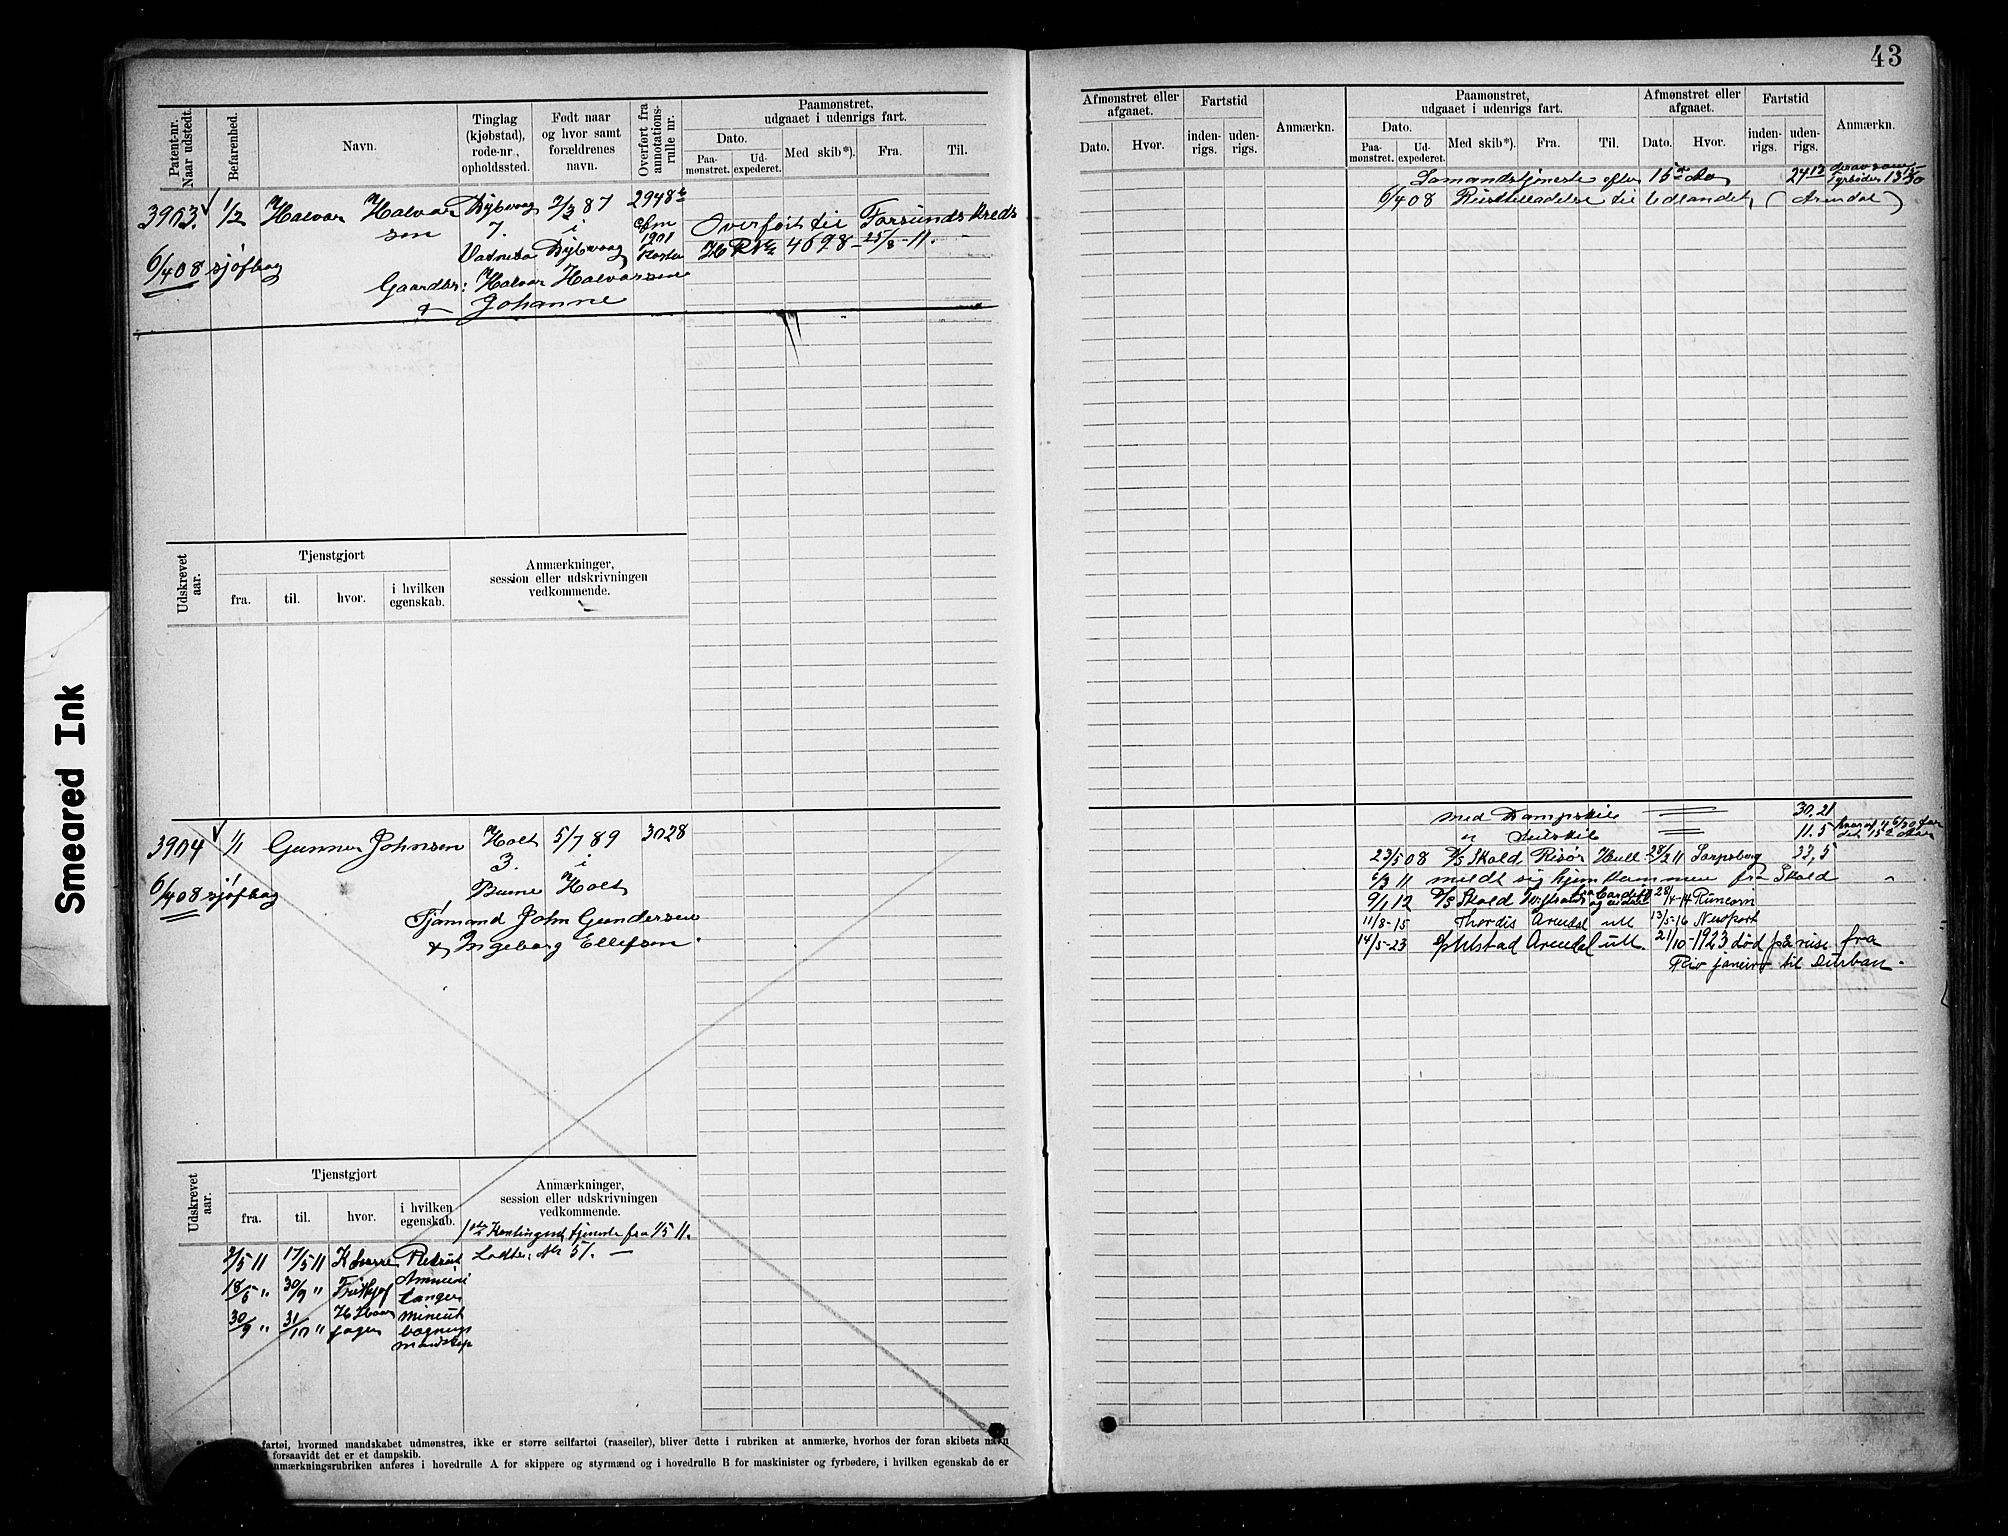 43
Patent-nr.
Naar udstedt.
Befarenhed.
Navn.
Tinglag
(kjøbstad),
rode-nr.,
opholdssted.
Født naar
og hvor samt
forældrenes
navn.
Overført fra
annotations-
rulle nr.
Paamønstret,
udgaaet i udenrigs fart.
Dato.
Paa-
mønstret.
Ud-
expederet.
Med skib*).
Fra.
Til.
Afmønstret eller
afgaaet.
Dato.
Hvor.
Fartstid
inden-
rigs.
uden-
rigs.
Anmærkn.
Paamønstret,
udgaaet i udenrigs fart.
Dato.
Paa-
mønstret.
Ud-
expederet.
Med skib*).
Fra.
Til.
Afmønstret eller
afgaaet.
Dato.
Hvor.
Fartstid
inden-
rigs.
uden-
rigs.
Anmærkn.
3903. 1/2 Halvor Halvor Dybvaag 2/3 87 2948
sen 7. i
Vatnesø Dybvaag
6/4 08 sjøfbog
Gaardbr: Halvor Halvorsen
& Johanne
Overført til Farsunds Kreds
HR No 4698 - 25/8 - 11.
Sømandstjeneste efter 15de Aar
6/4 08 Reisetilladelse til Udlandet (Arendal)
Udskrevet
aar.
Tjenstgjort
fra.
til.
hvor.
i hvilken
egenskab.
Anmærkninger,
session eller udskrivningen
vedkommende.
3904 1/1 Gunner Johnsen Holt 5/7 89 3028
3. i
Holt
6/4 08 sjøfbog
Tjomand John Gundersen
& Ingeborg Ellefsen.
med Dampskib 30,21
" Seilskib 11.5
23/5 08 D/S Skold Risør Hull 28/2 11 Sarpsborg 33,5
6/3 11 meldt sig hjemkommen fra Skold "
9/1 12 D/S Skold 28/4-14 Runcorn
11/8-15 Thordis Arendal utl 13/5-16 Newport
14/5-23 Arendal utl. 21/10-1923 død på reise fra
Rio janeiro til Durban.
Udskrevet
aar.
Tjenstgjort
fra.
til.
hvor.
i hvilken
egenskab.
Anmærkninger,
session eller udskrivningen
vedkommende.
1ste Kontingents tjeneste fra 1/5 11.
2/5 11 17/5 11 Rekrut Lodtr. No 51. —
18/5 " 30/9 " Frithjof Ammuni
langer
30/9 " 31/10 " mineud
jager lægnings
mandskap
fartøi, hvormed mandskabet udmønstres, ikke er større seilfartøi (raaseiler), bliver dette i rubriken at anmærke, hvorhos der foran skibets navn
forsaavidt det er et dampskib.
anmærkningsrubriken anføres i hovedrulle A for skippere og styrmænd og i hovedrulle B for maskinister og fyrbødere, i hvilken egenskab de er
Smeared Ink